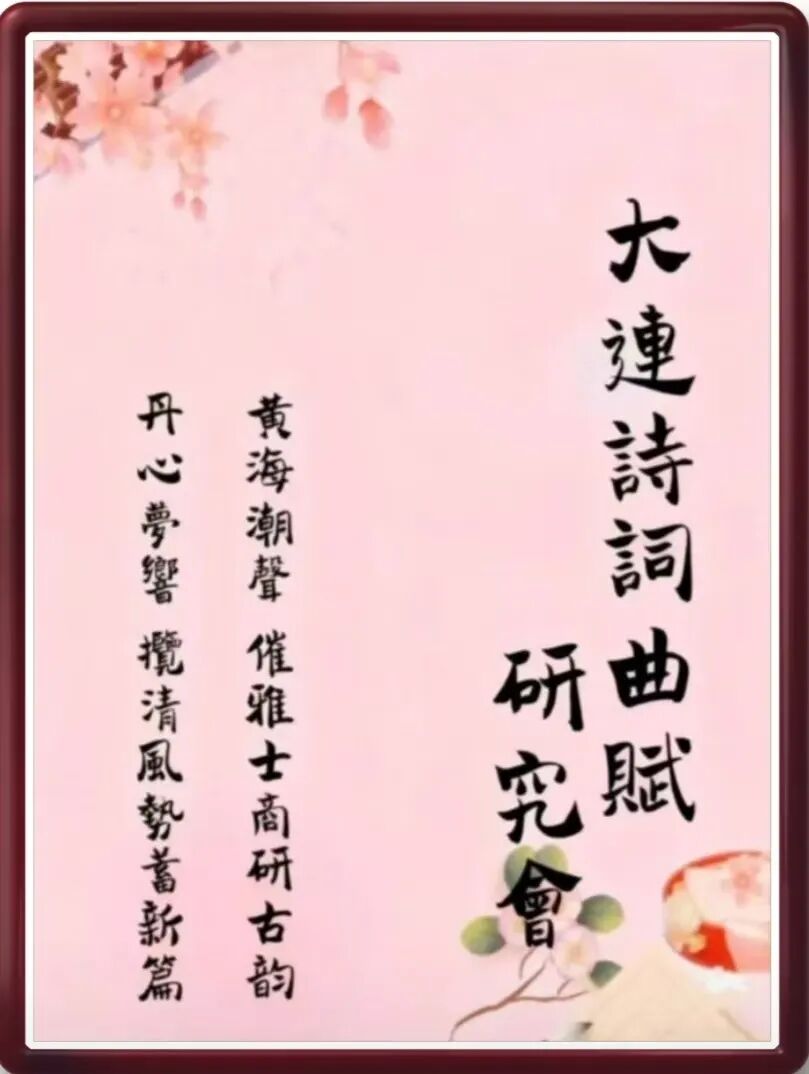 大連詩詞曲賦
研究會
黃海潮聲 催雅士商研古韵
丹心夢響 攬清風勢蓄新篇